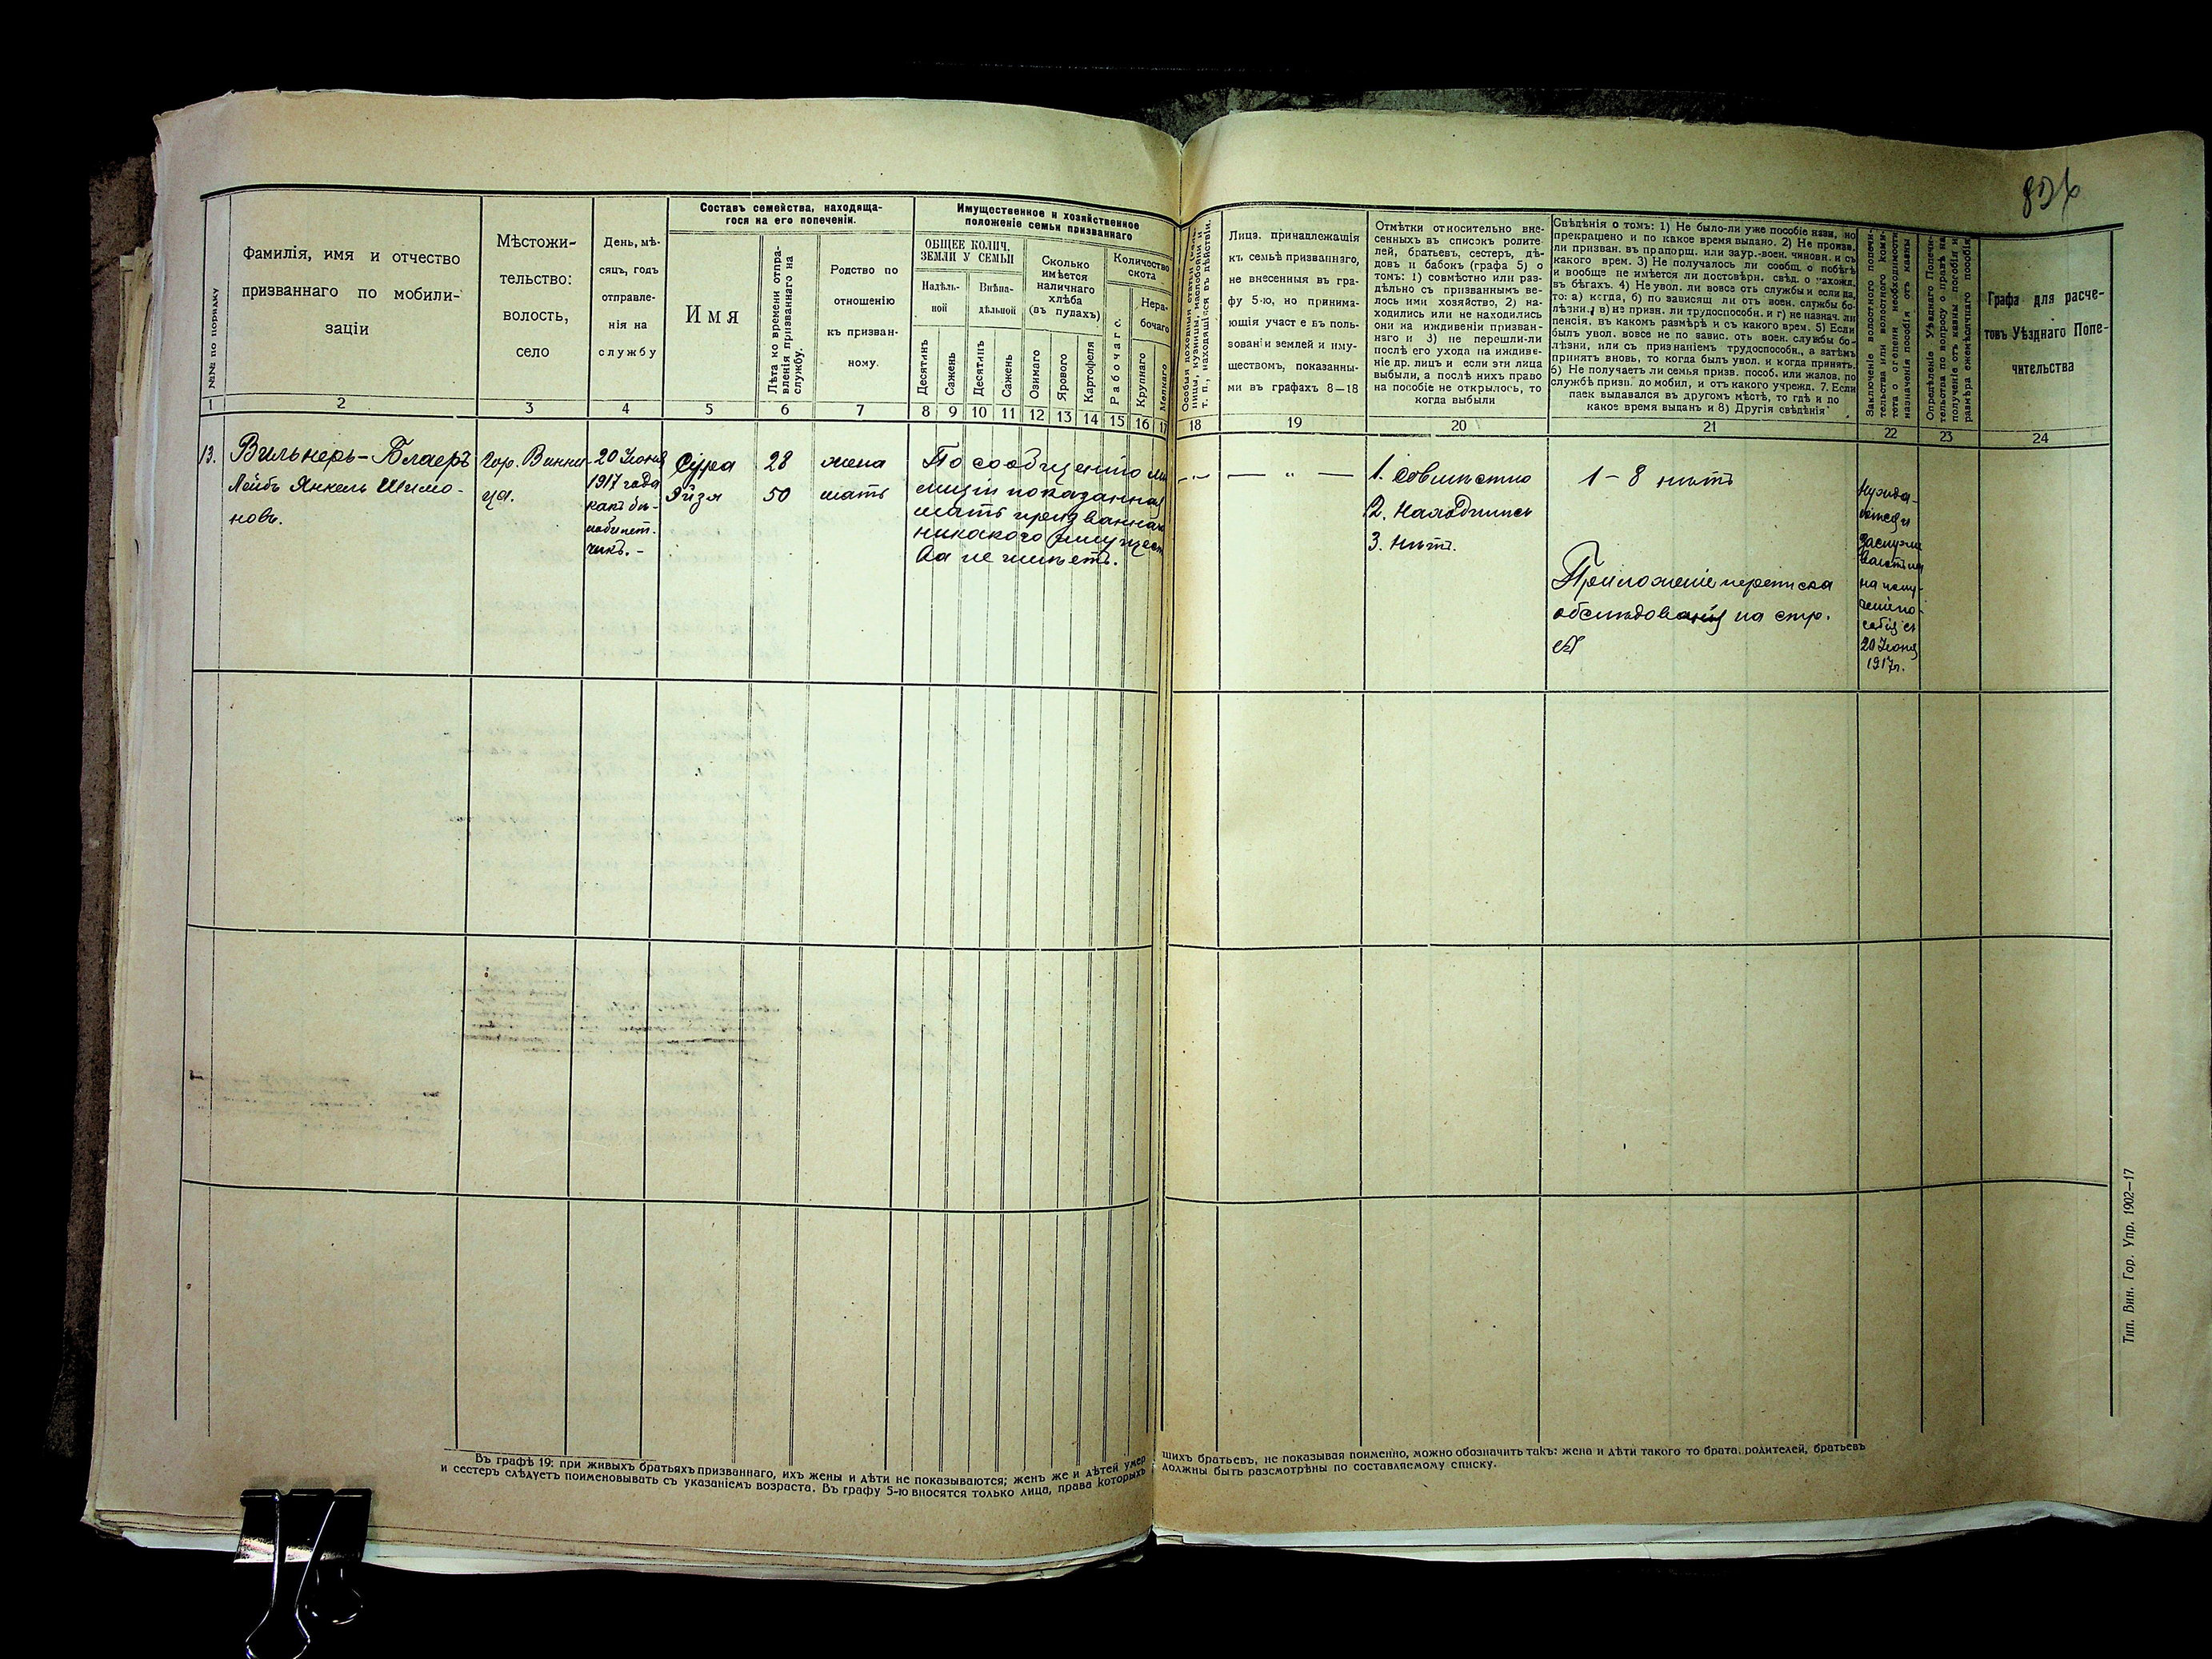 Фамилія, имя и отчество
призваннаго по мобили-
заціи
Мѣстожи-
тельство:
волость,
село
День, мѣ-
сяцъ, годъ
отправле-
нія на
службу
Составъ семейства, находяща-
гося на его попеченіи.
Имя
Лѣта ко времени отпра-
вленія призваннаго на
службу.
Родство по
отношенію
къ призван-
ному.
Имущественное и хозяйственное
положеніе семьи призваннаго
ОБЩЕЕ КОЛИЧ.
ЗЕМЛИ У СЕМЬИ
Надѣль-
ной
Внѣна-
дѣльной
Сколько
имѣется
наличнаго
хлѣба
(въ пудахъ)
Количество
скота
Нера-
бочаго
Десятинъ
Сажень
Десятинъ
Сажень
Озимаго
Ярового
Картофеля
Рабочаго
Крупнаго
Мелкаго
№№ по порядку
Лица, принадлежащія
къ семьѣ призваннаго,
не внесенныя въ гра-
фу 5-ю, но принима-
ющія участіе въ поль-
зованіи землей и иму-
ществомъ, показанны-
ми въ графахъ 8—18
Отмѣтки относительно вне-
сенныхъ въ списокъ родите-
лей, братьевъ, сестеръ, дѣ-
довъ и бабокъ (графа 5) о
томъ: 1) совмѣстно или раз-
дѣльно съ призваннымъ ве-
лось ими хозяйство, 2) на-
ходились или не находились
они на иждивеніи призван-
наго и 3) не перешли-ли
послѣ его ухода на иждиве-
ніе др. лицъ и если эти лица
выбыли, а послѣ нихъ право
на пособіе не открылось, то
когда выбыли
Свѣдѣнія о томъ: 1) Не было-ли уже пособіе назн, но
прекращено и по какое время выдано. 2) Не произв.
ли призван. въ прапорщ. или заур.-воен. чиновн. и съ
какого врем. 3) Не получалось ли сообщ. о побѣгѣ
и вообще не имѣется ли достовѣрн. свѣд. о нахожд.
въ бѣгахъ. 4) Не увол. ли вовсе отъ службы и если да,
то: а) когда, б) по зависящ ли отъ воен. службы бо-
лѣзни, в) не призн. ли трудоспособн. и г) не назнач. ли
пенсія, въ какомъ размѣрѣ и съ какого врем. 5) Если
былъ увол. вовсе не по завис. отъ воен. службы бо-
лѣзни, или съ признаніемъ трудоспособн., а затѣмъ
принятъ вновь, то когда былъ увол. и когда принятъ.
6) Не получаетъ ли семья призв. пособ. или жалов. по
службѣ призв. до мобил, и отъ какого учрежд. 7. Если
паек выдавался въ другомъ мѣстѣ, то гдѣ и по
какое время выданъ и 8) Другія свѣдѣнія
Заключеніе волостного попечи-
тельства или волостного коми-
тета о степени необходимости
назначенія пособія отъ казны
Опредѣленіе Уѣзднаго Попечи-
тельства по вопросу о правѣ на
полученіе отъ казны пособія и
размѣра ежемѣсячнаго пособія
Графа для расче-
товъ Уѣзднаго Попе-
чительства
1 2 3 4 5 6 7 8 9 10 11 12 13 14 15 16 17 18 19 20 21 22 23 24
13. Вильнеръ-Блаеръ
Лейбъ Янкель Шимо-
новъ.
Гор. Винни-
ца.
20 Іюня
1917 года
какъ бѣ-
лобилет-
чикъ. -
Сура 28 жена
Эйзя 50 мать
По сообщенію ми-
лиціи показанная
мать призванная
никакого имущест
ва не имѣетъ.
— " —
1. Совмѣстно
2. Находились
3. Нѣтъ.
1 - 8 нѣтъ
Приложеніе переписка
обслѣдованія на стр.
Нужда-
ется и
заслужи
20 Іюня
1917г.
Въ графѣ 19: при живыхъ братьяхъ призваннаго, ихъ жены и дѣти не показываются; женъ же и дѣтей умер шихъ братьевъ, не показывая поименно, можно обозначить такъ: жена и дѣти такого то брата, родителей, братьевъ
и сестеръ слѣдуетъ поименовывать съ указаніемъ возраста. Въ графу 5-ю вносятся только лица, права которыхъ должны быть разсмотрѣны по составляемому списку.
Тип. Вин. Гор. Упр. 1902—17